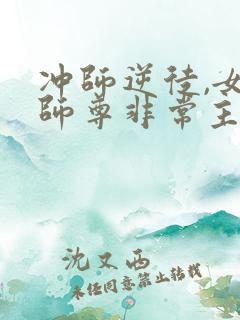 冲師逆徒,女
師尊非常主
沈又西
未经同意禁止转载